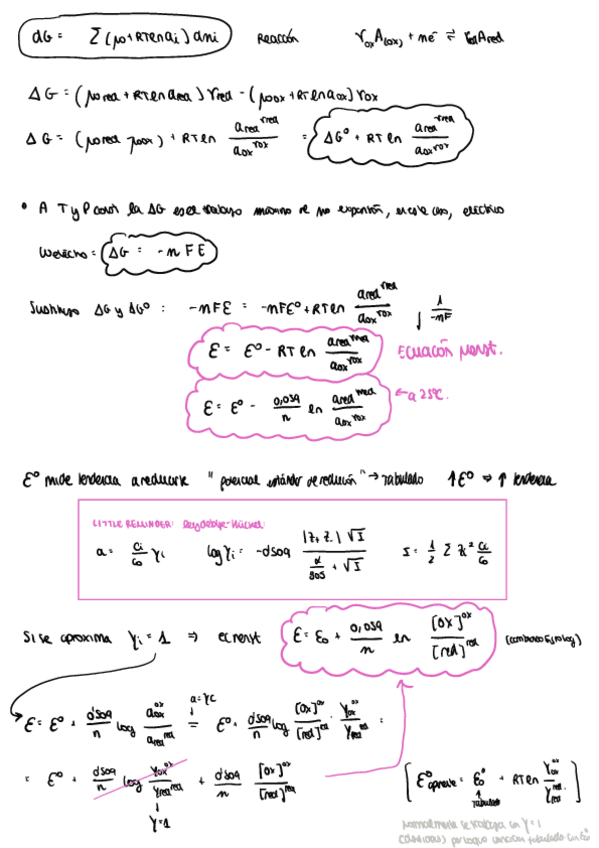 dG = Σ(μ₀+RTlnaᵢ)dnᵢ reacción γₒₓA₍ₒₓ₎ + ne⁻ ⇌ γredAred
ΔG = (μ₀red + RTln ared) γred - (μ₀ox + RTln aox) γox
ΔG = (μ₀red μ₀ox) + RTln ared^γred / aox^γox = ΔG⁰ + RTln ared^γred / aox^γox
• A T y P const la ΔG es el trabajo máximo de no expansión, en este caso, eléctrico
Weléctrico = ΔG = -nFE
Sustituyo ΔG y ΔG⁰ : -nFE = -nFE⁰ + RTln ared^γred / aox^γox ↓ 1/-nF
E = E⁰ - RT ln ared^γred / aox^γox Ecuación Nernst.
E = E⁰ - 0,059/n ln ared^γred / aox^γox ← a 25ºC.
E⁰ mide tendencia a reducirse "potencial estándar de reducción" → tabulado ↑E⁰ ⇒ ↑ tendencia
LITTLE REMINDER: Ley debye-Hückel:
a = Ci/C₀ γᵢ log γᵢ = -0'509 |Z₊ Z₋| √I / α/305 + √I I = 1/2 Σ Zᵢ² Ci/C₀
Si se aproxima γᵢ = 1 ⇒ ec nernst E = E₀ + 0,059/n ln [ox]^ox / [red]^red (cambiando signo log)
a = γC
E = E⁰ + 0'509/n log aox^ox / ared^red = E⁰ + 0'509/n log [ox]^ox / [red]^red · γox^ox / γred^red =
= E⁰ + 0'509/n log γox^ox / γred^red + 0'509/n [ox]^ox / [red]^red
γ=1
[E⁰aparente = E₀⁰ + RTln γox^ox / γred^red]
tabulado
normalmente se trabaja con γ=1